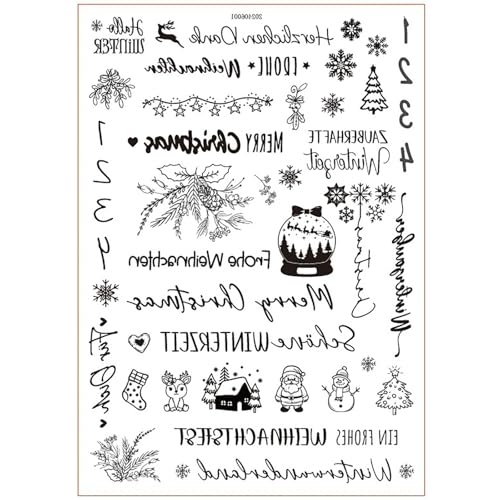 Hallo
WINTER
Herzlichen Dank
FROHE
Weihnachten
1
2
3
4
MERRY Christmas
ZAUBERHAFTE
Winterzeit
1
2
3
4
Frohe Weihnachten
Merry Christmas
Schöne WINTERZEIT
EIN FROHES WEIHNACHTSFEST
Winterwunderland